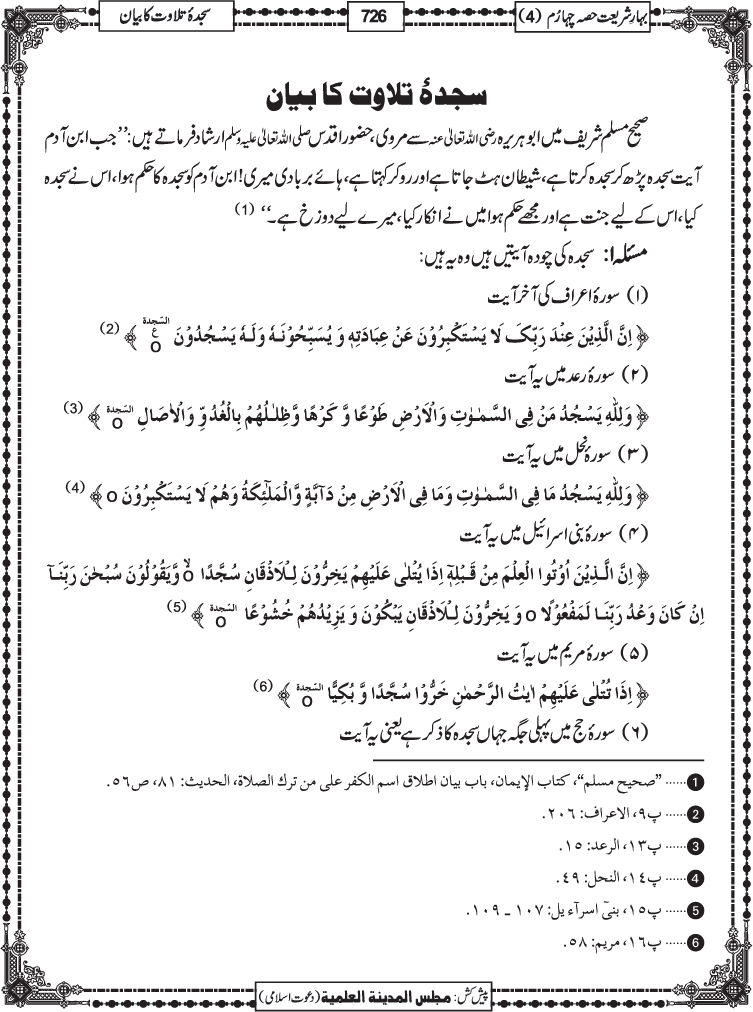 بہارِ شریعت حصہ چہارم (4)
726
سجدۂ تلاوت کا بیان
سجدۂ تلاوت کا بیان
صحیح مسلم شریف میں ابوہریرہ رضی اللہ تعالیٰ عنہ سے مروی، حضور اقدس صلی اللہ تعالیٰ علیہ وسلم ارشاد فرماتے ہیں: ’’جب ابن آدم
آیت سجدہ پڑھ کر سجدہ کرتا ہے، شیطان ہٹ جاتا ہے اور رو کر کہتا ہے، ہائے بربادی میری! ابن آدم کو سجدہ کا حکم ہوا، اس نے سجدہ
کیا، اس کے لیے جنت ہے اور مجھے حکم ہوا میں نے انکار کیا، میرے لیے دوزخ ہے۔‘‘ (1)
مسئلہ ۱: سجدہ کی چودہ آیتیں ہیں وہ یہ ہیں:
(۱) سورۂ اعراف کی آخر آیت
﴿ اِنَّ الَّذِیْنَ عِنْدَ رَبِّکَ لَا یَسْتَکْبِرُوْنَ عَنْ عِبَادَتِہٖ وَ یُسَبِّحُوْنَہٗ وَلَہٗ یَسْجُدُوْنَ السّجدۃ ع o ﴾ (2)
(۲) سورۂ رعد میں یہ آیت
﴿ وَلِلّٰہِ یَسْجُدُ مَنْ فِی السَّمٰوٰتِ وَالْاَرْضِ طَوْعًا وَّ کَرْھًا وَّظِلٰلُھُمْ بِالْغُدُوِّ وَالْاٰصَالِ السّجدۃ o ﴾ (3)
(۳) سورۂ نحل میں یہ آیت
﴿ وَلِلّٰہِ یَسْجُدُ مَا فِی السَّمٰوٰتِ وَمَا فِی الْاَرْضِ مِنْ دَآبَّۃٍ وَّالْمَلٰٓئِکَۃُ وَھُمْ لَا یَسْتَکْبِرُوْنَ o ﴾ (4)
(۴) سورۂ بنی اسرائیل میں یہ آیت
﴿ اِنَّ الَّذِیْنَ اُوْتُوا الْعِلْمَ مِنْ قَبْلِہٖ اِذَا یُتْلٰی عَلَیْھِمْ یَخِرُّوْنَ لِلْاَذْقَانِ سُجَّدًا لا o وَّیَقُوْلُوْنَ سُبْحٰنَ رَبِّنَآ
اِنْ کَانَ وَعْدُ رَبِّنَا لَمَفْعُوْلًا o وَ یَخِرُّوْنَ لِلْاَذْقَانِ یَبْکُوْنَ وَ یَزِیْدُھُمْ خُشُوْعًا السّجدۃ o ﴾ (5)
(۵) سورۂ مریم میں یہ آیت
﴿ اِذَا تُتْلٰی عَلَیْھِمْ اٰیٰتُ الرَّحْمٰنِ خَرُّوْا سُجَّدًا وَّ بُکِیًّا السّجدۃ o ﴾ (6)
(۶) سورۂ حج میں پہلی جگہ جہاں سجدہ کا ذکر ہے یعنی یہ آیت
1 ...... ”صحيح مسلم“، كتاب الإيمان، باب بيان اطلاق اسم الكفر على من ترك الصلاة، الحديث: ٨١، ص٥٦.
2 ...... پ٩، الاعراف: ٢٠٦.
3 ...... پ١٣، الرعد: ١٥.
4 ...... پ١٤، النحل: ٤٩.
5 ...... پ١٥، بنیٓ اسرآءيل: ١٠٧ ـ ١٠٩.
6 ...... پ١٦، مريم: ٥٨.
پیش کش: مجلس المدينة العلمية (دعوتِ اسلامی)